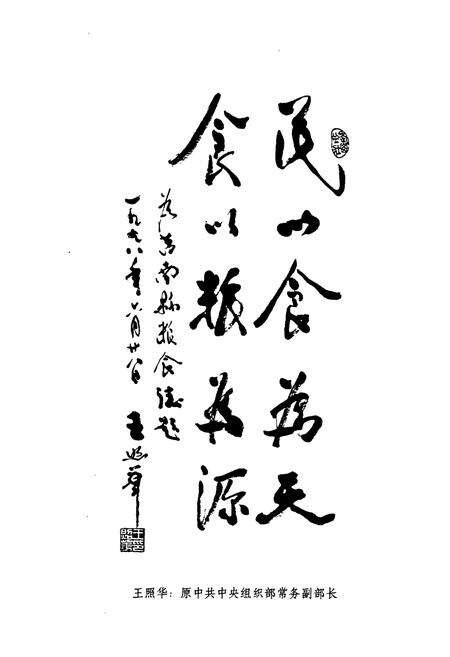 民以食為天
食以粮為源
为莒南縣粮食誌题
一九八八年六月廿八日 王照華
王照华：原中共中央组织部常务副部长